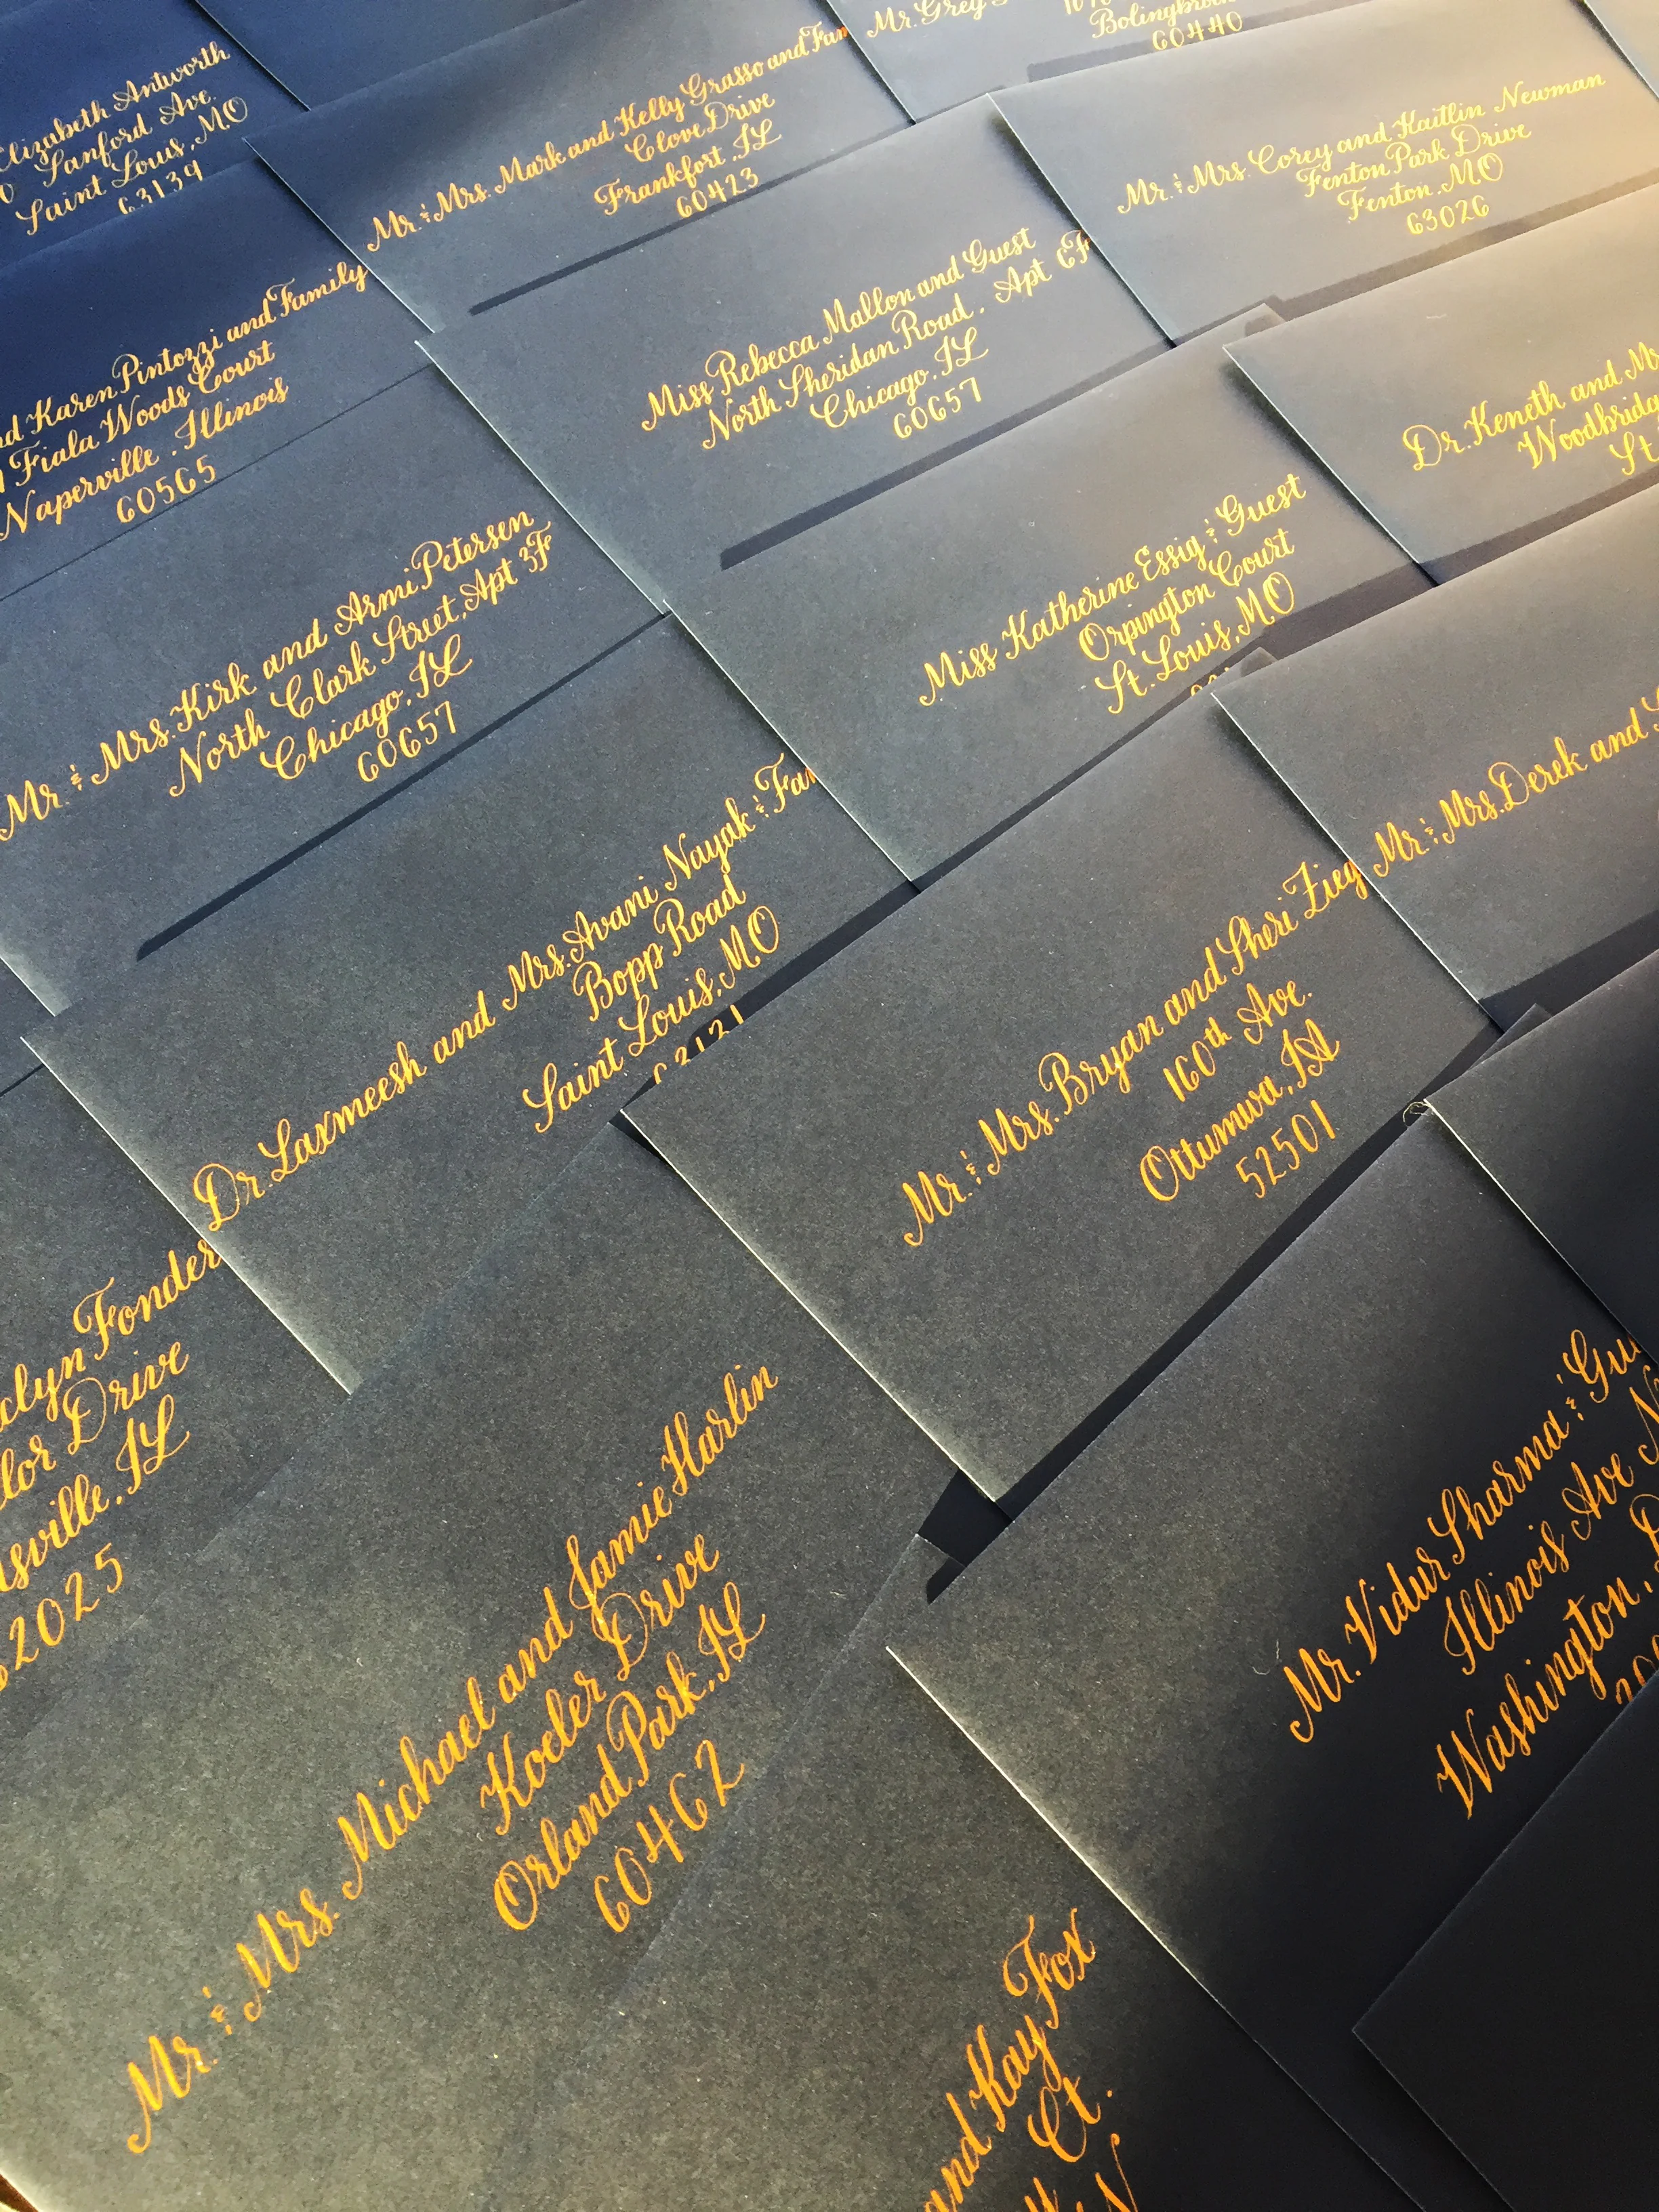 Elizabeth Antworth
Sanford Ave.
Saint Louis, MO
63139
Mr. & Mrs. Mark and Kelly Grasso and Fam
Clove Drive
Frankfort, IL
60423
Mr. Grey
Bolingbrook
60440
Mr. & Mrs. Corey and Kaitlin Newman
Fenton Park Drive
Fenton, MO
63026
nd Karen Pintozzi and Family
Fiala Woods Court
Naperville, Illinois
60565
Miss Rebecca Mallon and Guest
North Sheridan Road, Apt 6F
Chicago, IL
60657
Dr. Keneth and
Woodbridg
St.
Mr. & Mrs. Kirk and Armi Petersen
North Clark Street, Apt 3F
Chicago, IL
60657
Miss Katherine Essig & Guest
Orpington Court
St. Louis, MO
Dr. Laxmeesh and Mrs. Avani Nayak & Fam
Bopp Road
Saint Louis, MO
63131
Mr. & Mrs. Bryan and Sheri Zieg
160th Ave.
Ottumwa, IA
52501
Mr. & Mrs. Derek and
clyn Fonder
lor Drive
sville, IL
2025
Mr. & Mrs. Michael and Jamie Harlin
Koeler Drive
Orland Park, IL
60462
Mr. Vidur Sharma & Gu
Illinois Ave N
Washington, D
and Kay Fox
Ct.